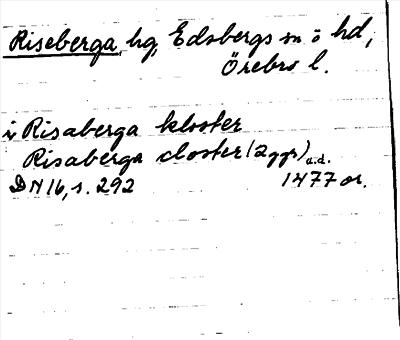 Riseberga, hg, Edsbergs sn o hd,
Örebro l.
i Risaberga kloster
Risaberga closter (2 ggr) a.d.
DN 16, s. 292 1477 or.